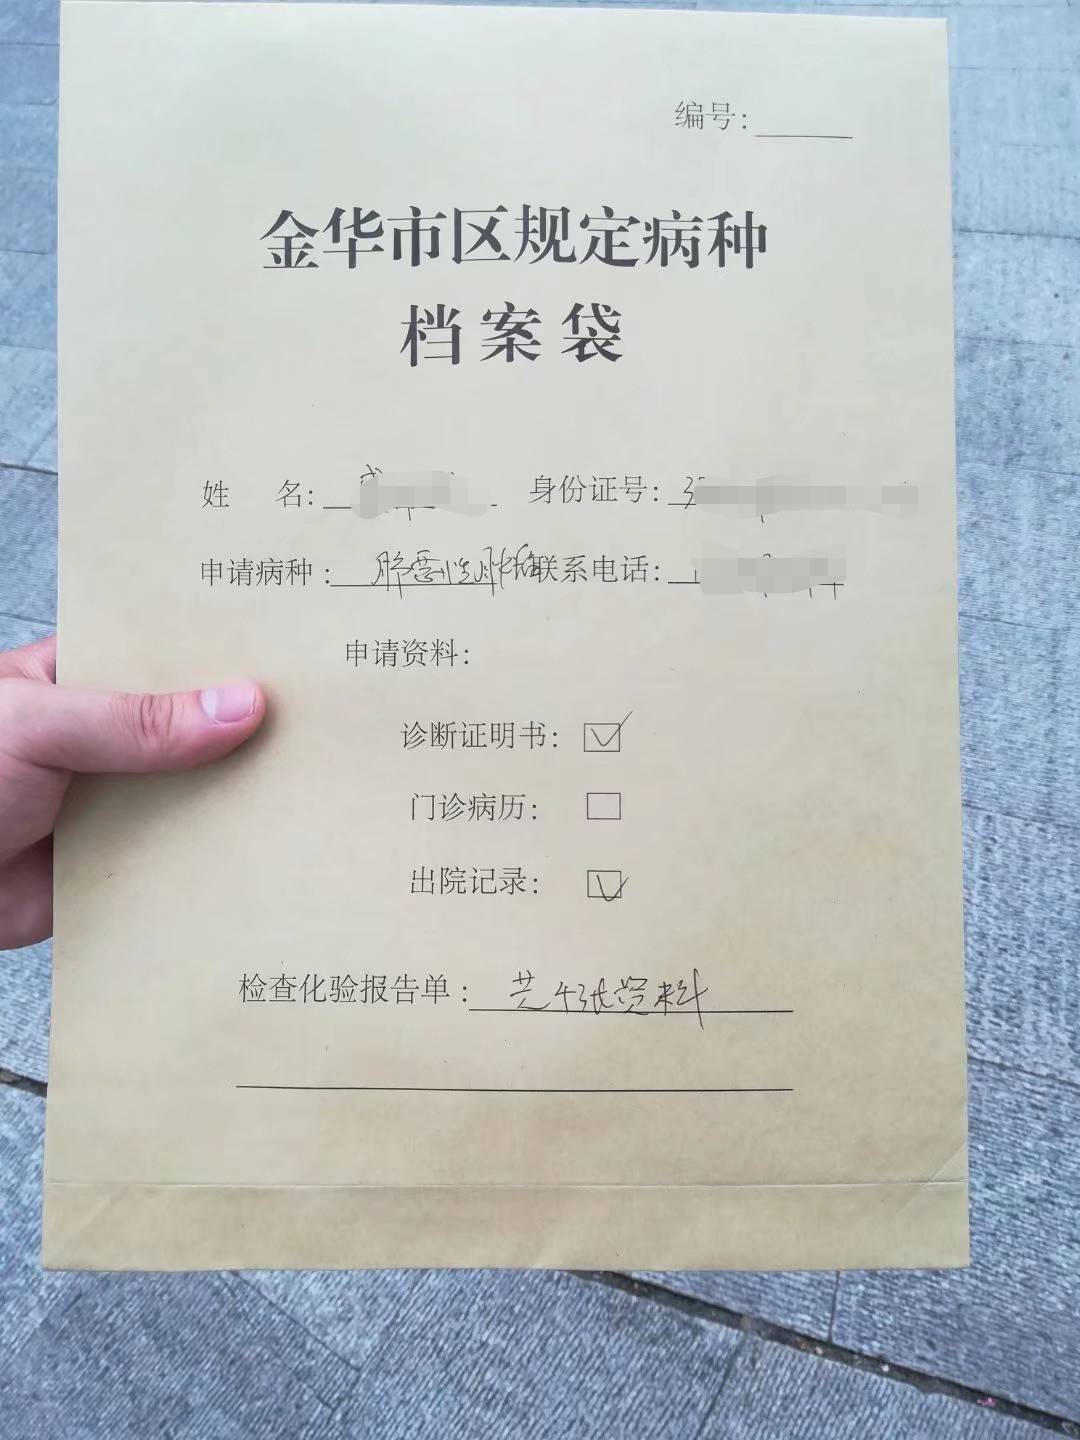 编号：
金华市区规定病种
档案袋
姓 名： 身份证号：3
申请病种：肺恶性肿瘤 联系电话：
申请资料：
诊断证明书：☑
门诊病历：☐
出院记录：☑
检查化验报告单：共 张资料